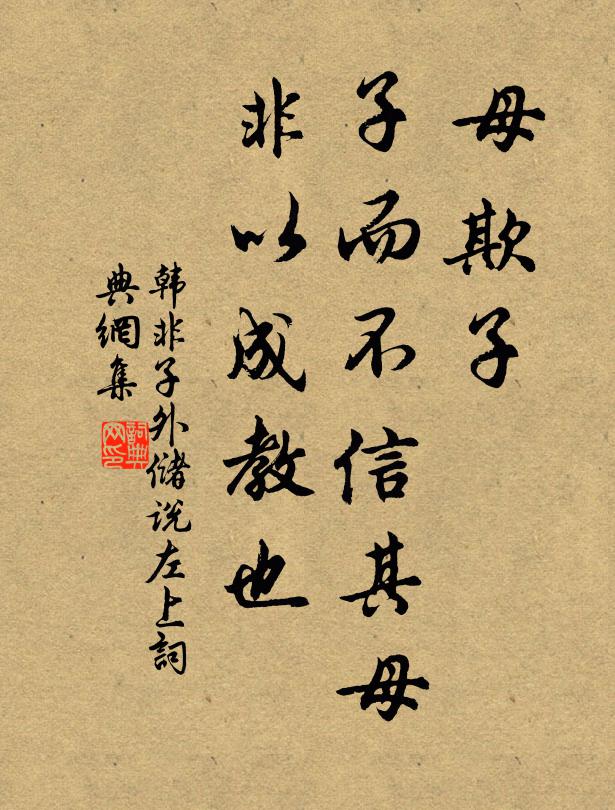 母欺子
子而不信其母
非以成教也
韩非子外储说左上詞
典網集
詞典
网印